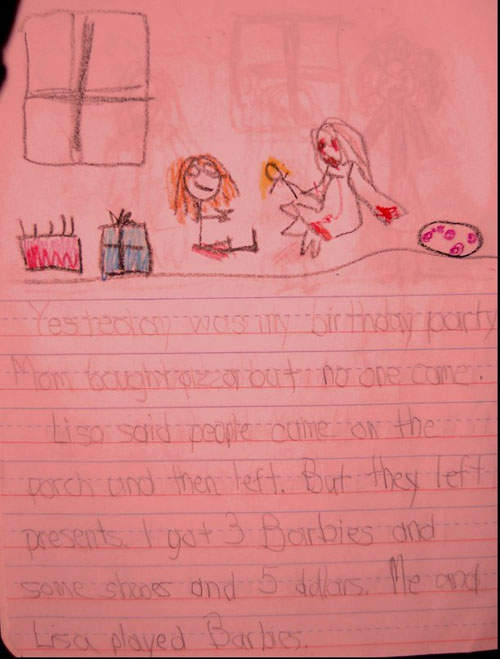 Yesterday was my birthday party
Mom bought pizza but no one came.
Lisa said people came on the
porch and then left. But they left
presents. I got 3 Barbies and
some shoes and 5 dollars. Me and
Lisa played Barbies.